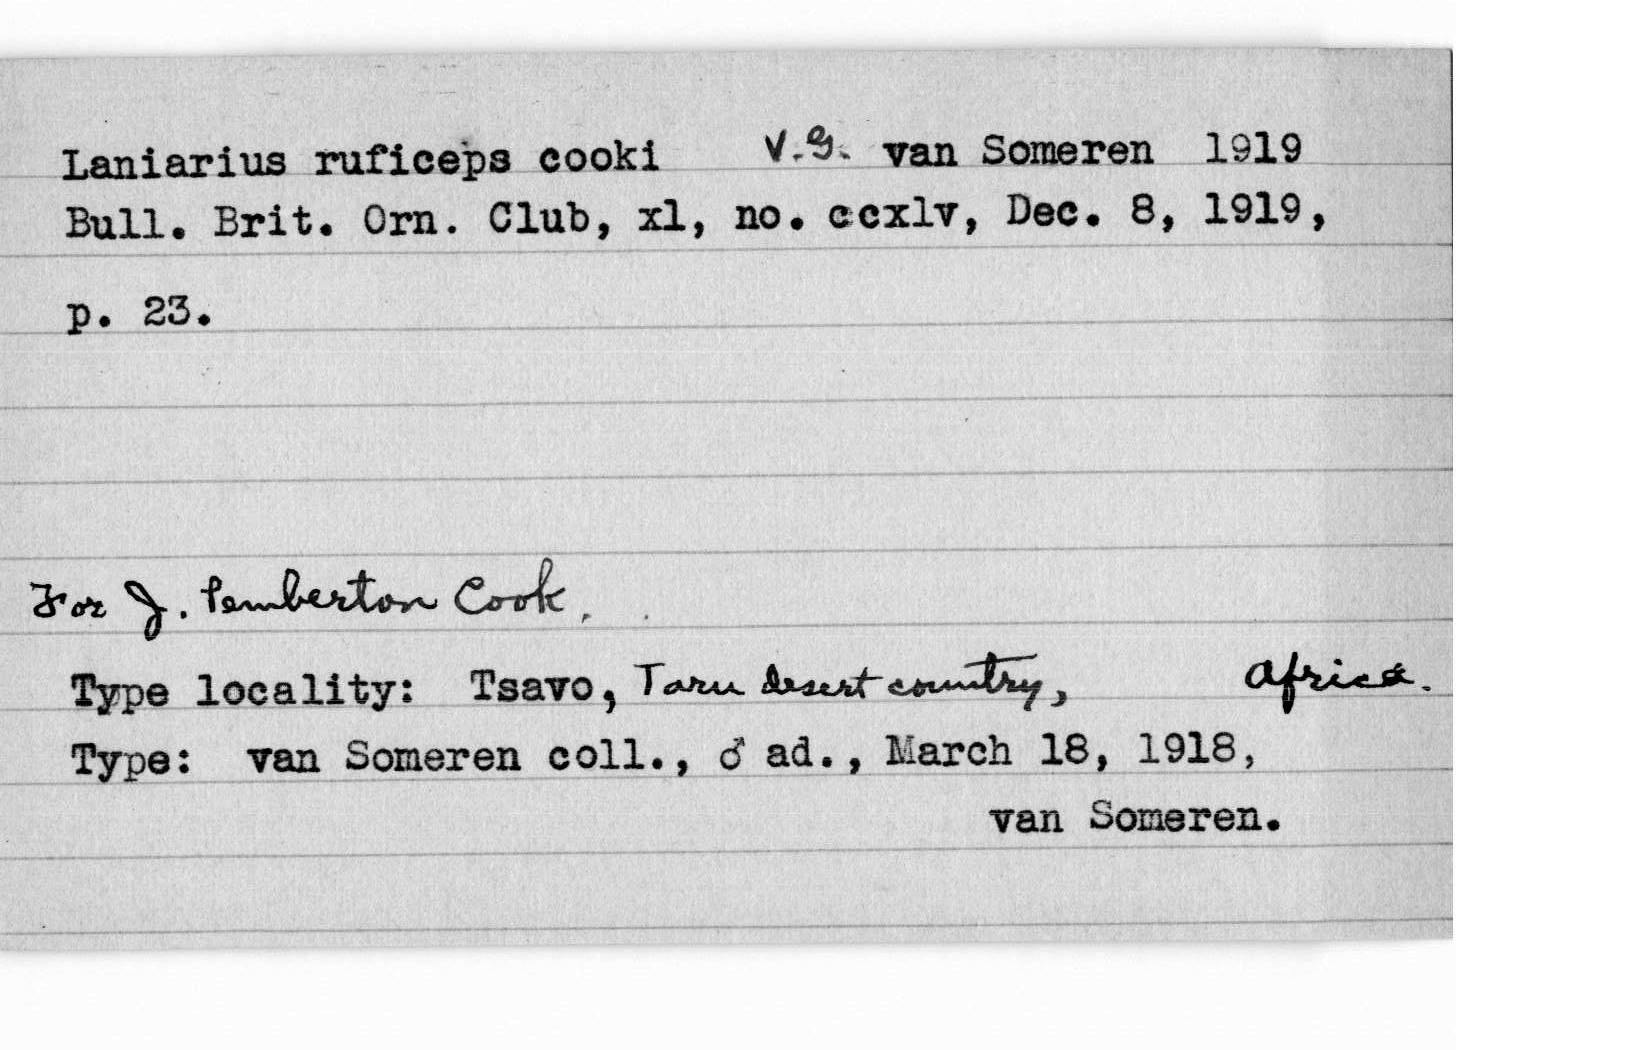 Laniarius ruficeps cooki V.G. van Someren 1919
Bull. Brit. Orn. Club, xl, no. ccxlv, Dec. 8, 1919,
p. 23.
For J. Pemberton Cook.
Type locality: Tsavo, Taru desert country, Africa.
Type: van Someren coll., ♂ ad., March 18, 1918,
van Someren.